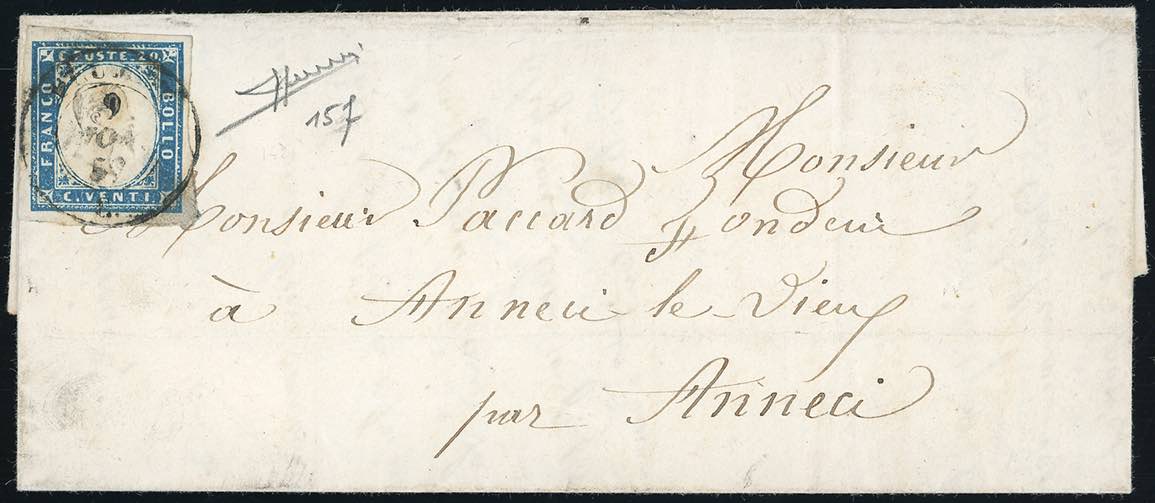 C. POSTE 20
FRANCO
BOLLO
C. VENTI.
9
59
157
Monsieur
Monsieur Paccard Fondeur
à Anneci le Vieux
par Anneci